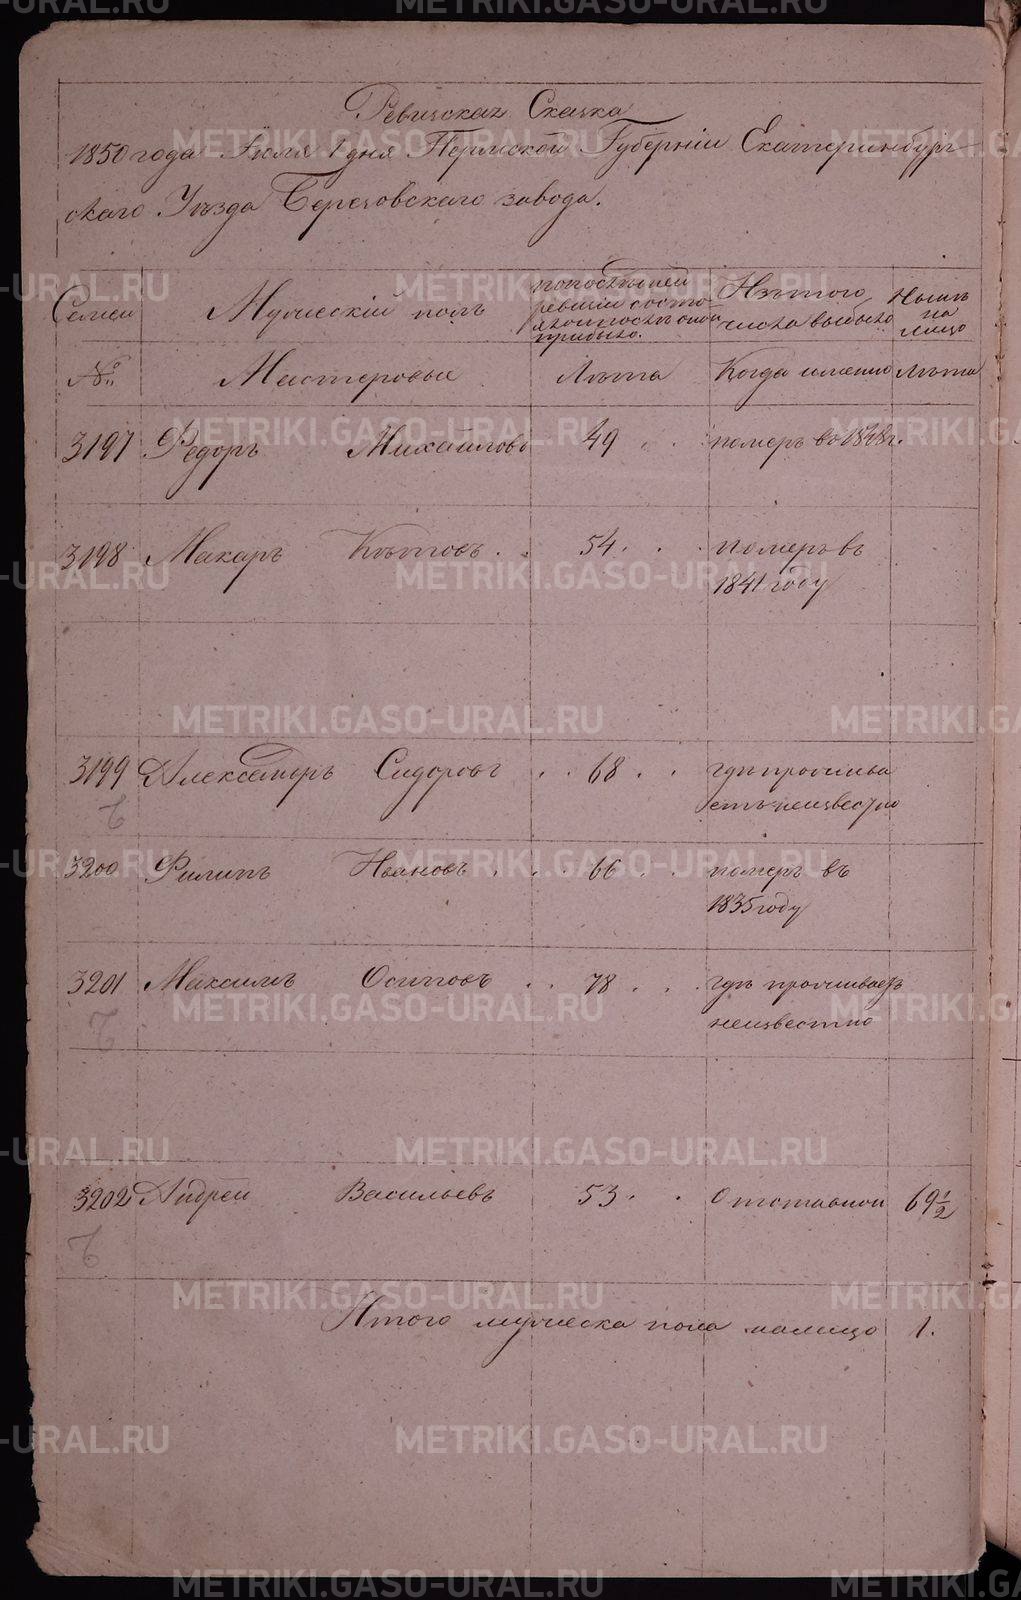 Ревизская Сказка
1850 года Июля 1 дня Пермской Губерніи Екатеринбург-
скаго Уѣзда Березовскаго завода.
Семьи
Мужескій полъ
по последней
ревизіи состо-
яло и после оной
прибыло.
Изъ того
числа выбыло
Нынѣ
на
лицо
№
Мастеровые
Лѣта
Когда именно
Лѣта
3197 Федоръ Михайловъ 49 померъ въ 1848 г.
3198 Макаръ Китовъ 54 померъ въ
1841 году
3199 Александръ Сидоровъ 68 гдѣ прожива
етъ неизвестно
3200 Филипъ Ивановъ 66 померъ въ
1835 году
3201 Максимъ Осиповъ 78 гдѣ проживаетъ
неизвестно
3202 Андрей Васильевъ 53 отставной 69 1/2
Итого мужеска пола налицо 1.
METRIKI.GASO-URAL.RU